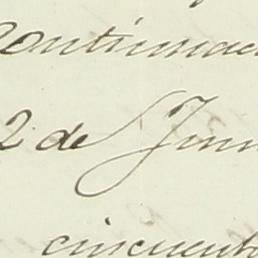 Continuac
2 de Juni
cincuenta